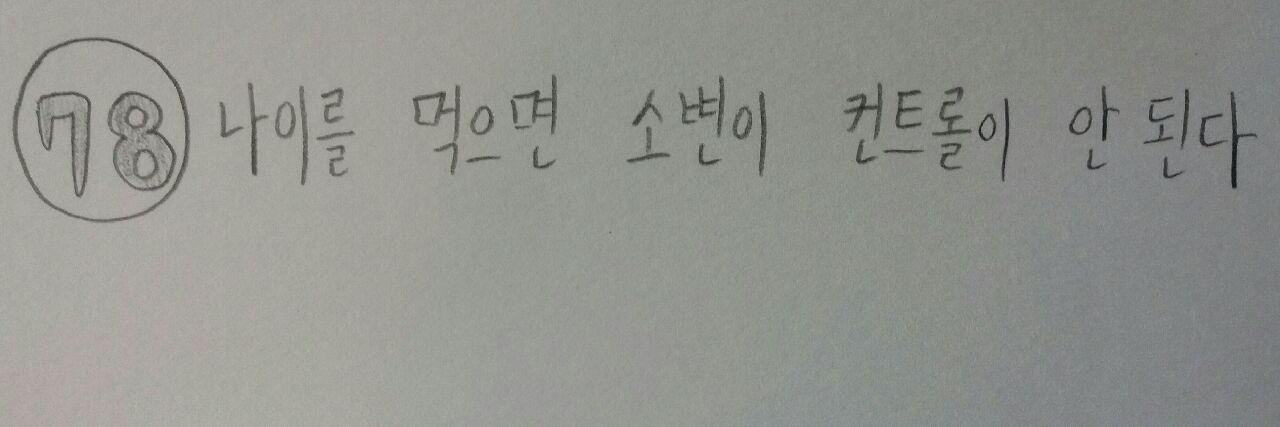 78 나이를 먹으면 소변이 컨트롤이 안 된다